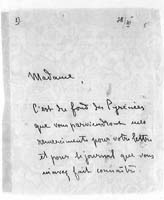 Madame,
C'est du fond des Pyrénées
que vous parviendront mes
remerciements pour votre lettre
et pour le journal que vous
m'avez fait connaître